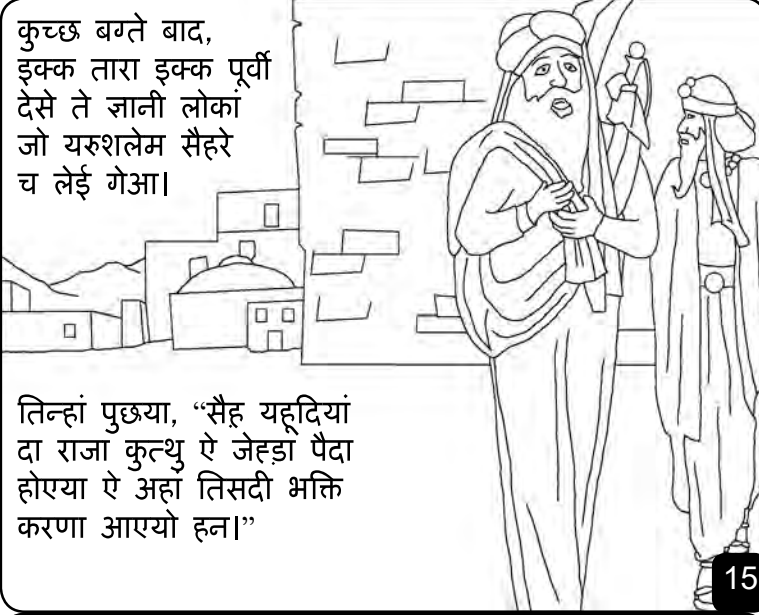 कुच्छ बग्ते बाद,
इक्क तारा इक्क पूर्वी
देसे ते ज्ञानी लोकां
जो यरुशलेम सैहरे
च लेई गेआ।
तिन्हां पुछया, “सैह़ यहूदियां
दा राजा कुत्थु ऐ जेह्ड़ा पैदा
होएया ऐ अहां तिसदी भक्ति
करणा आएयो हन।”
15